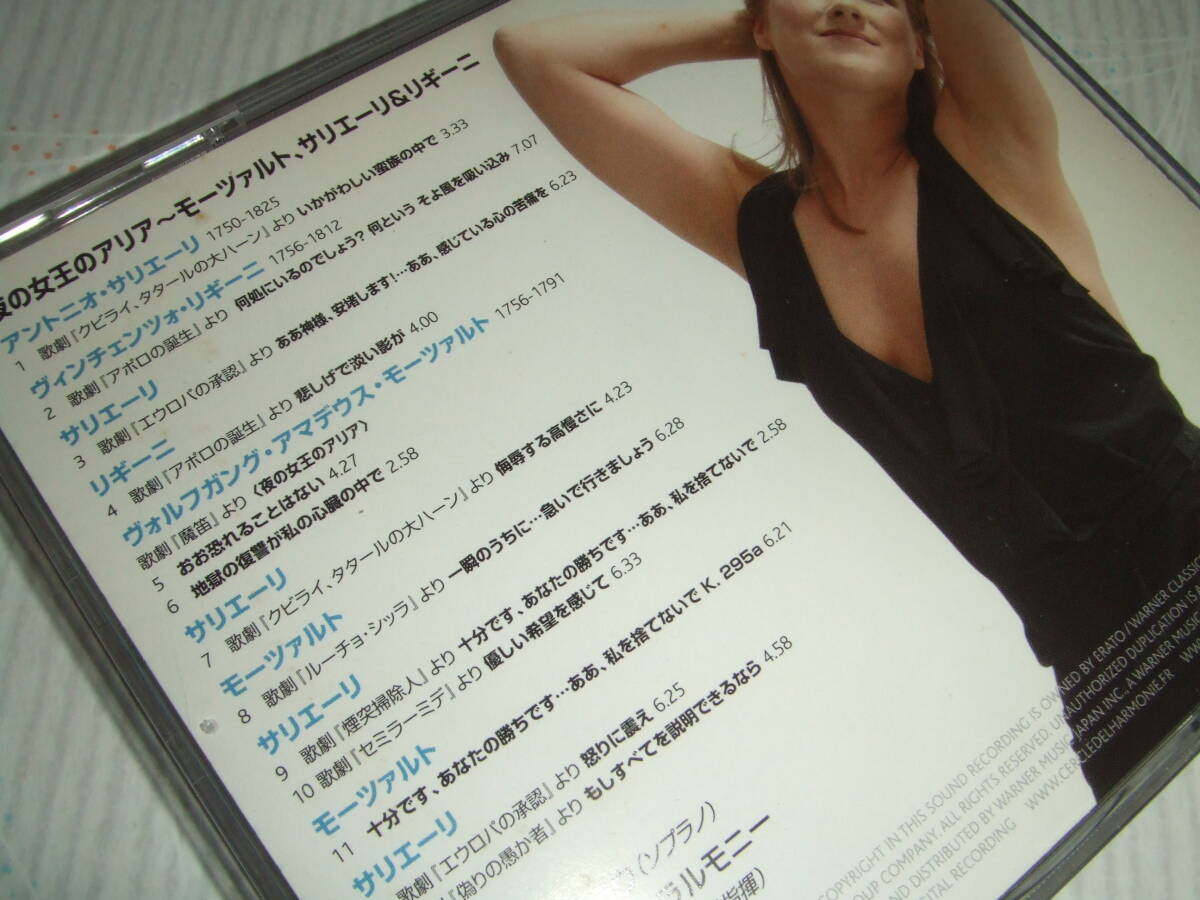 夜の女王のアリア～モーツァルト、サリエーリ&リギーニ
アントニオ・サリエーリ 1750-1825
1 歌劇『クビライ、タタールの大ハーン』より いかがわしい蛮族の中で 3.33
ヴィンチェンツォ・リギーニ 1756-1812
2 歌劇『アポロの誕生』より 何処にいるのでしょう? 何という そよ風を吸い込み 7.07
サリエーリ
3 歌劇『エウロパの承認』より ああ神様、安堵します!…ああ、感じている心の苦痛を 6.23
リギーニ
4 歌劇『アポロの誕生』より 悲しげで淡い影が 4.00
ヴォルフガング・アマデウス・モーツァルト 1756-1791
歌劇『魔笛』より〈夜の女王のアリア〉
5 おお恐れることはない 4.27
6 地獄の復讐が私の心臓の中で 2.58
サリエーリ
7 歌劇『クビライ、タタールの大ハーン』より 侮辱する高慢さに 4.23
モーツァルト
8 歌劇『ルーチョ・シッラ』より 一瞬のうちに…急いで行きましょう 6.28
サリエーリ
9 歌劇『煙突掃除人』より 十分です、あなたの勝ちです…ああ、私を捨てないで 2.58
10 歌劇『セミラーミデ』より 優しい希望を感じて 6.33
モーツァルト
11 十分です、あなたの勝ちです…ああ、私を捨てないで K. 295a 6.21
サリエーリ
歌劇『エウロパの承認』より 怒りに震え 6.25
『偽りの愚か者』より もしすべてを説明できるなら 4.58
(ソプラノ)
ラルモニー
指揮)
COPYRIGHT IN THIS SOUND RECORDING IS OWNED BY ERATO / WARNER CLASSIC
GROUP COMPANY. ALL RIGHTS RESERVED. UNAUTHORIZED DUPLICATION IS
AND DISTRIBUTED BY WARNER MUSIC JAPAN INC., A WARNER MUSIC
DIGITAL RECORDING WWW.CERCLEDELHARMONIE.FR